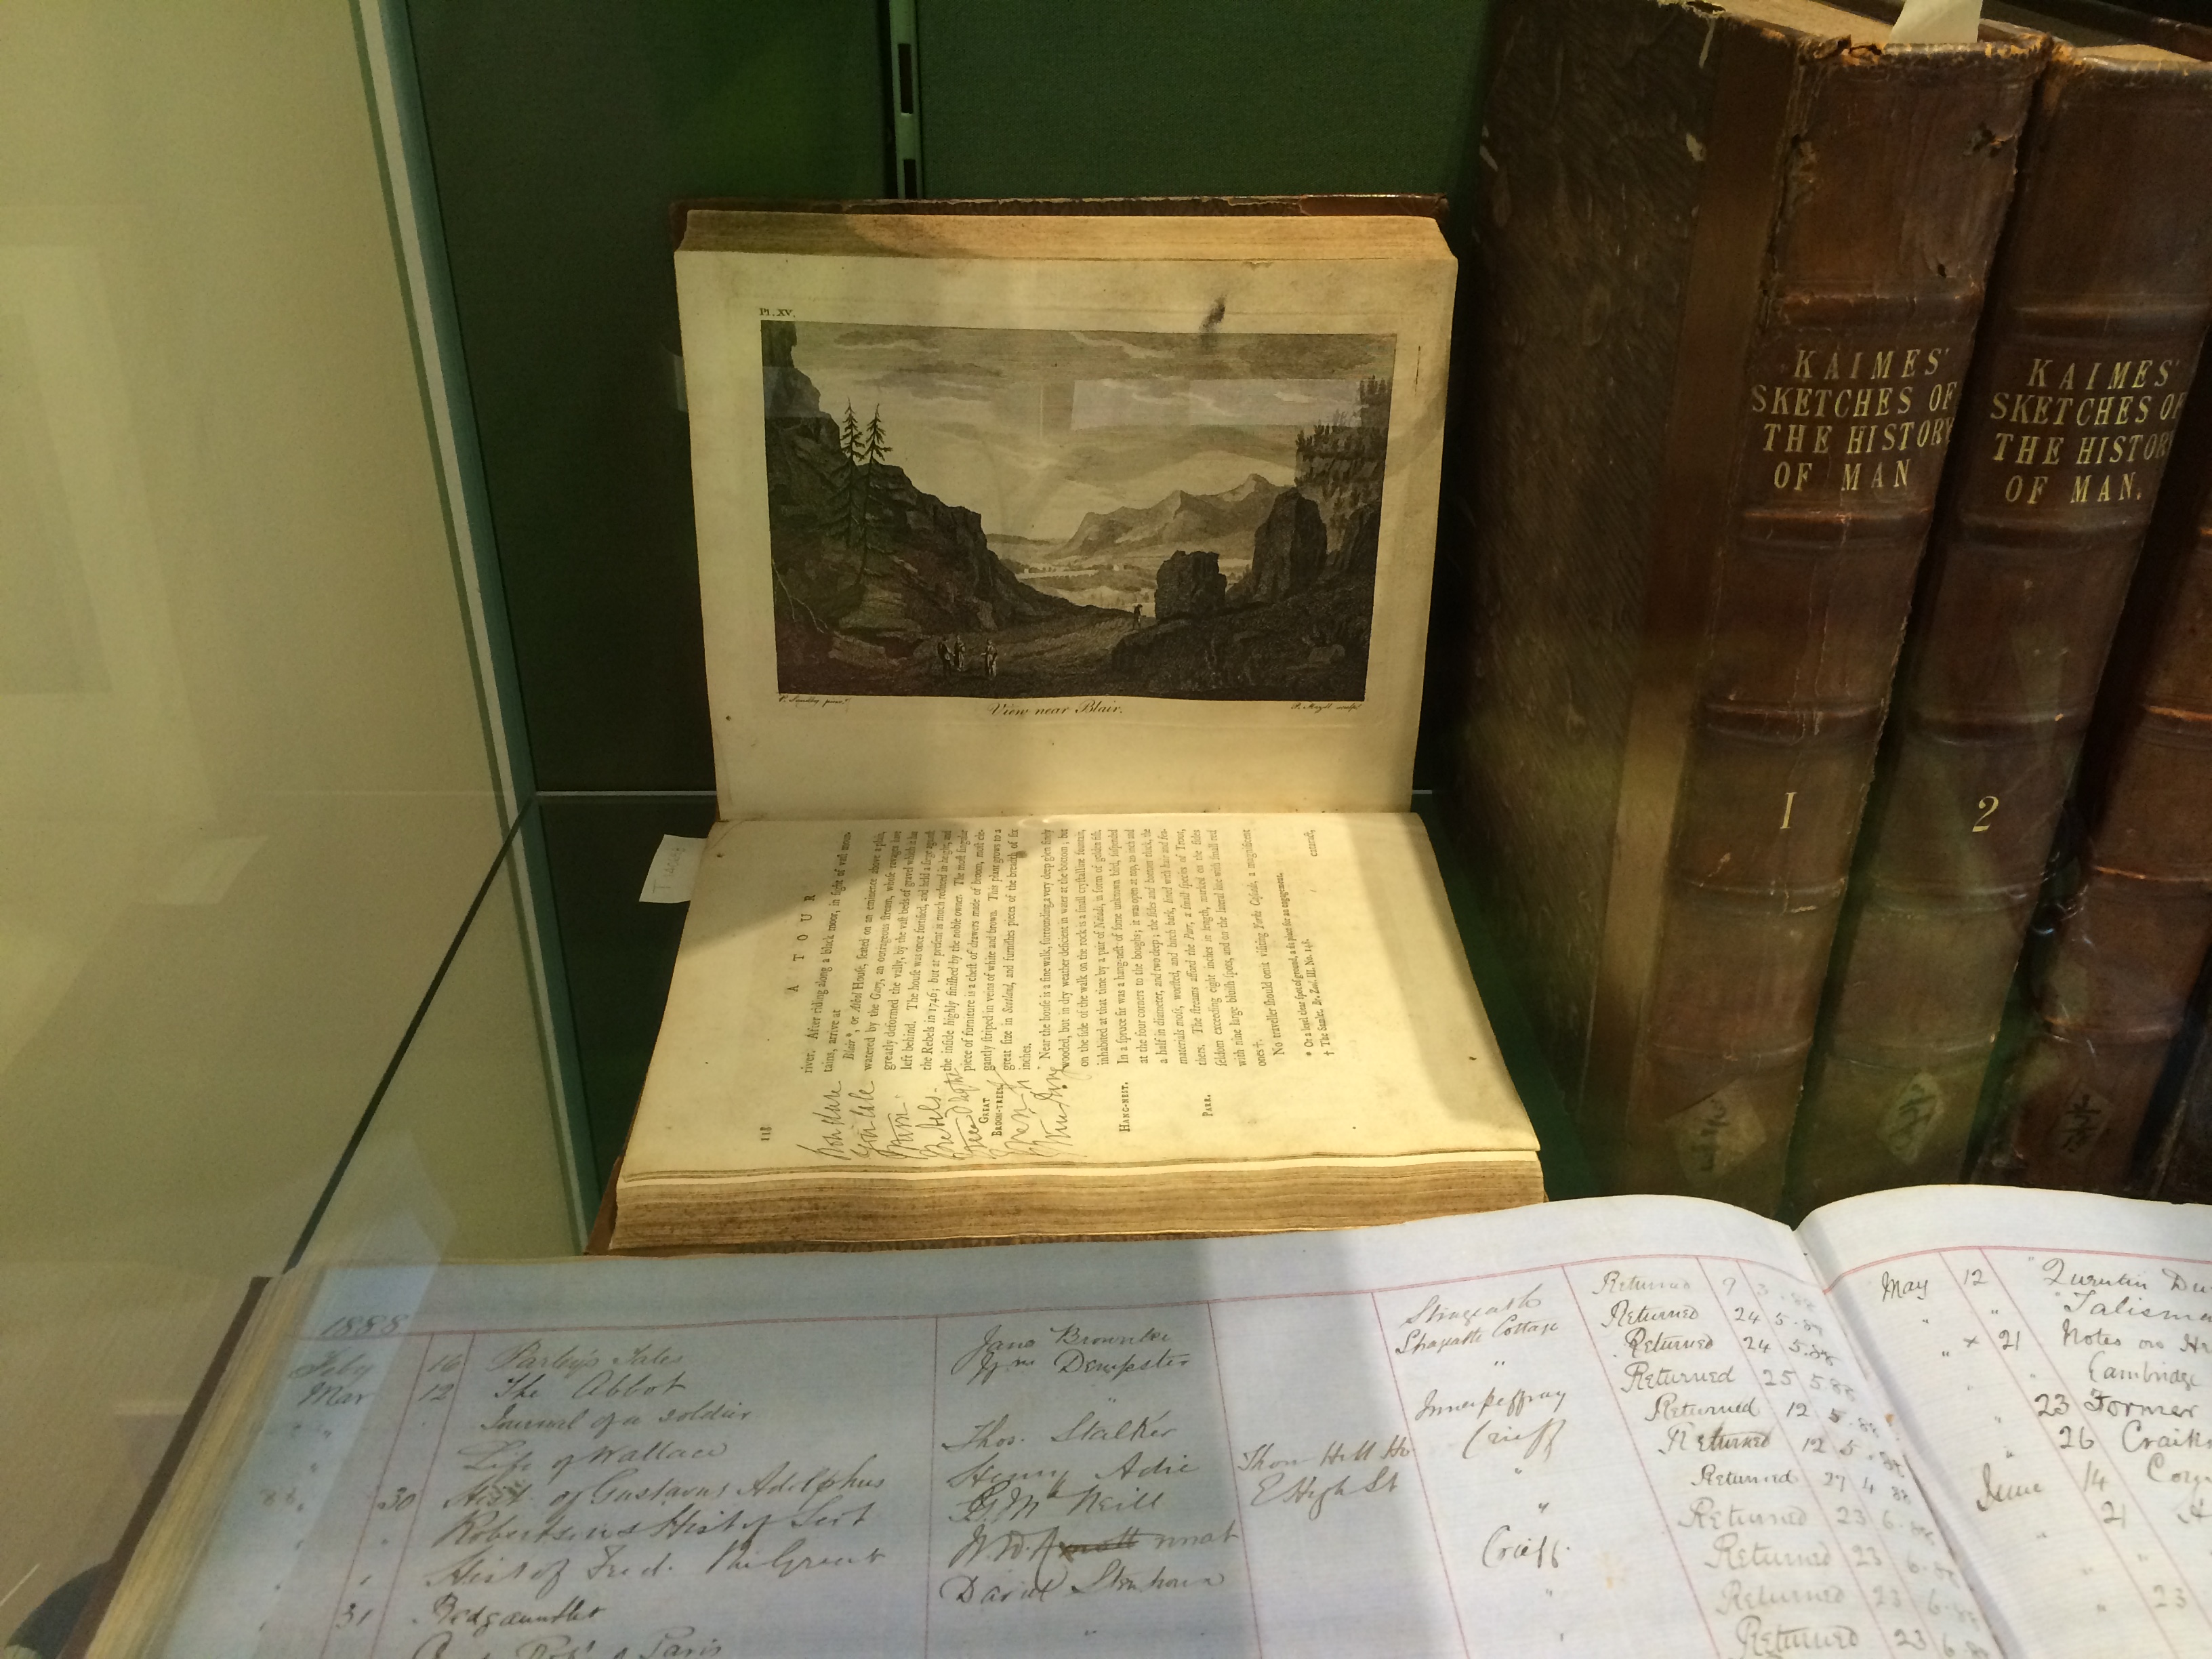 Pl. XV.
View near Blair.
KAIMES'
SKETCHES OF
THE HISTORY
OF MAN
1
KAIMES'
SKETCHES OF
THE HISTORY
OF MAN.
2
118
A TOUR
river. After riding along a black moor, in sight of vast moun-
tains, arrive at
Blair *, or Athol House, seated on an eminence above a plain,
watered by the Gary, an outrageous stream, whose ravages have
greatly deformed the vally, by the vast beds of gravel which it has
left behind. The house was once fortified, and held a siege against
the Rebels in 1746; but at present is much reduced in height, and
the inside highly finished by the noble owner. The most singular
piece of furniture is a chest of drawers made of broom, most ele-
gantly striped in veins of white and brown. This plant grows to a
great size in Scotland, and furnishes pieces of the breadth of six
inches.
GREAT
BROOM-TREES.
Near the house is a fine walk, surrounding a very deep glen finely
wooded, but in dry weather deficient in water at the bottom; but
on the side of the walk on the rock is a small crystalline fountain,
inhabited at that time by a pair of Naiads, in form of golden fish.
HANG-NEST.
In a spruce fir was a hang-nest of some unknown bird, suspended
at the four corners to the boughs; it was open at top, an inch and
a half in diameter, and two deep; the sides and bottom thick, the
materials moss, worsted, and birch bark, lined with hair and fea-
thers.
PARR.
The streams afford the Parr, a small species of Trout,
seldom exceeding eight inches in length, marked on the sides
with nine large bluish spots, and on the lateral line with small red
ones †.
No traveller should omit visiting Yorke Cascade, a magnificent
* Or a level clear spot of ground, a fit place for an engagement.
† The Samlet. Br. Zool. III. No. 148.
cataract,
1888
Feby 16 Parley's Tales Jane Brownlee Strageath Returned 9 3.88
Mar 12 The Abbot Wm Dempster Strageath Cottage Returned 24 5.88
" Journal of a soldier " " Returned 24 5.88
" Life of Wallace Thos. Stalker Innerpeffray Returned 25 5 88
30 Hist. of Gustavus Adolphus Henry Adie Crieff Returned 12 5.88
" Robertson's Hist of Scot G. McNeill E High St " Returned 12 5
Hist of Fred. the Great " Returned 27 4 88
31 Redgauntlet David Stenhouse Crieff. Returned 23 6.88
Paris " " Returned 23 6.88
Returned 23 6.88
Returned 23 6.88
May 12 Quentin Du
" Talisma
" × 21 Notes on
Cambridge
23 Former
26 Craik
June 14
21
23